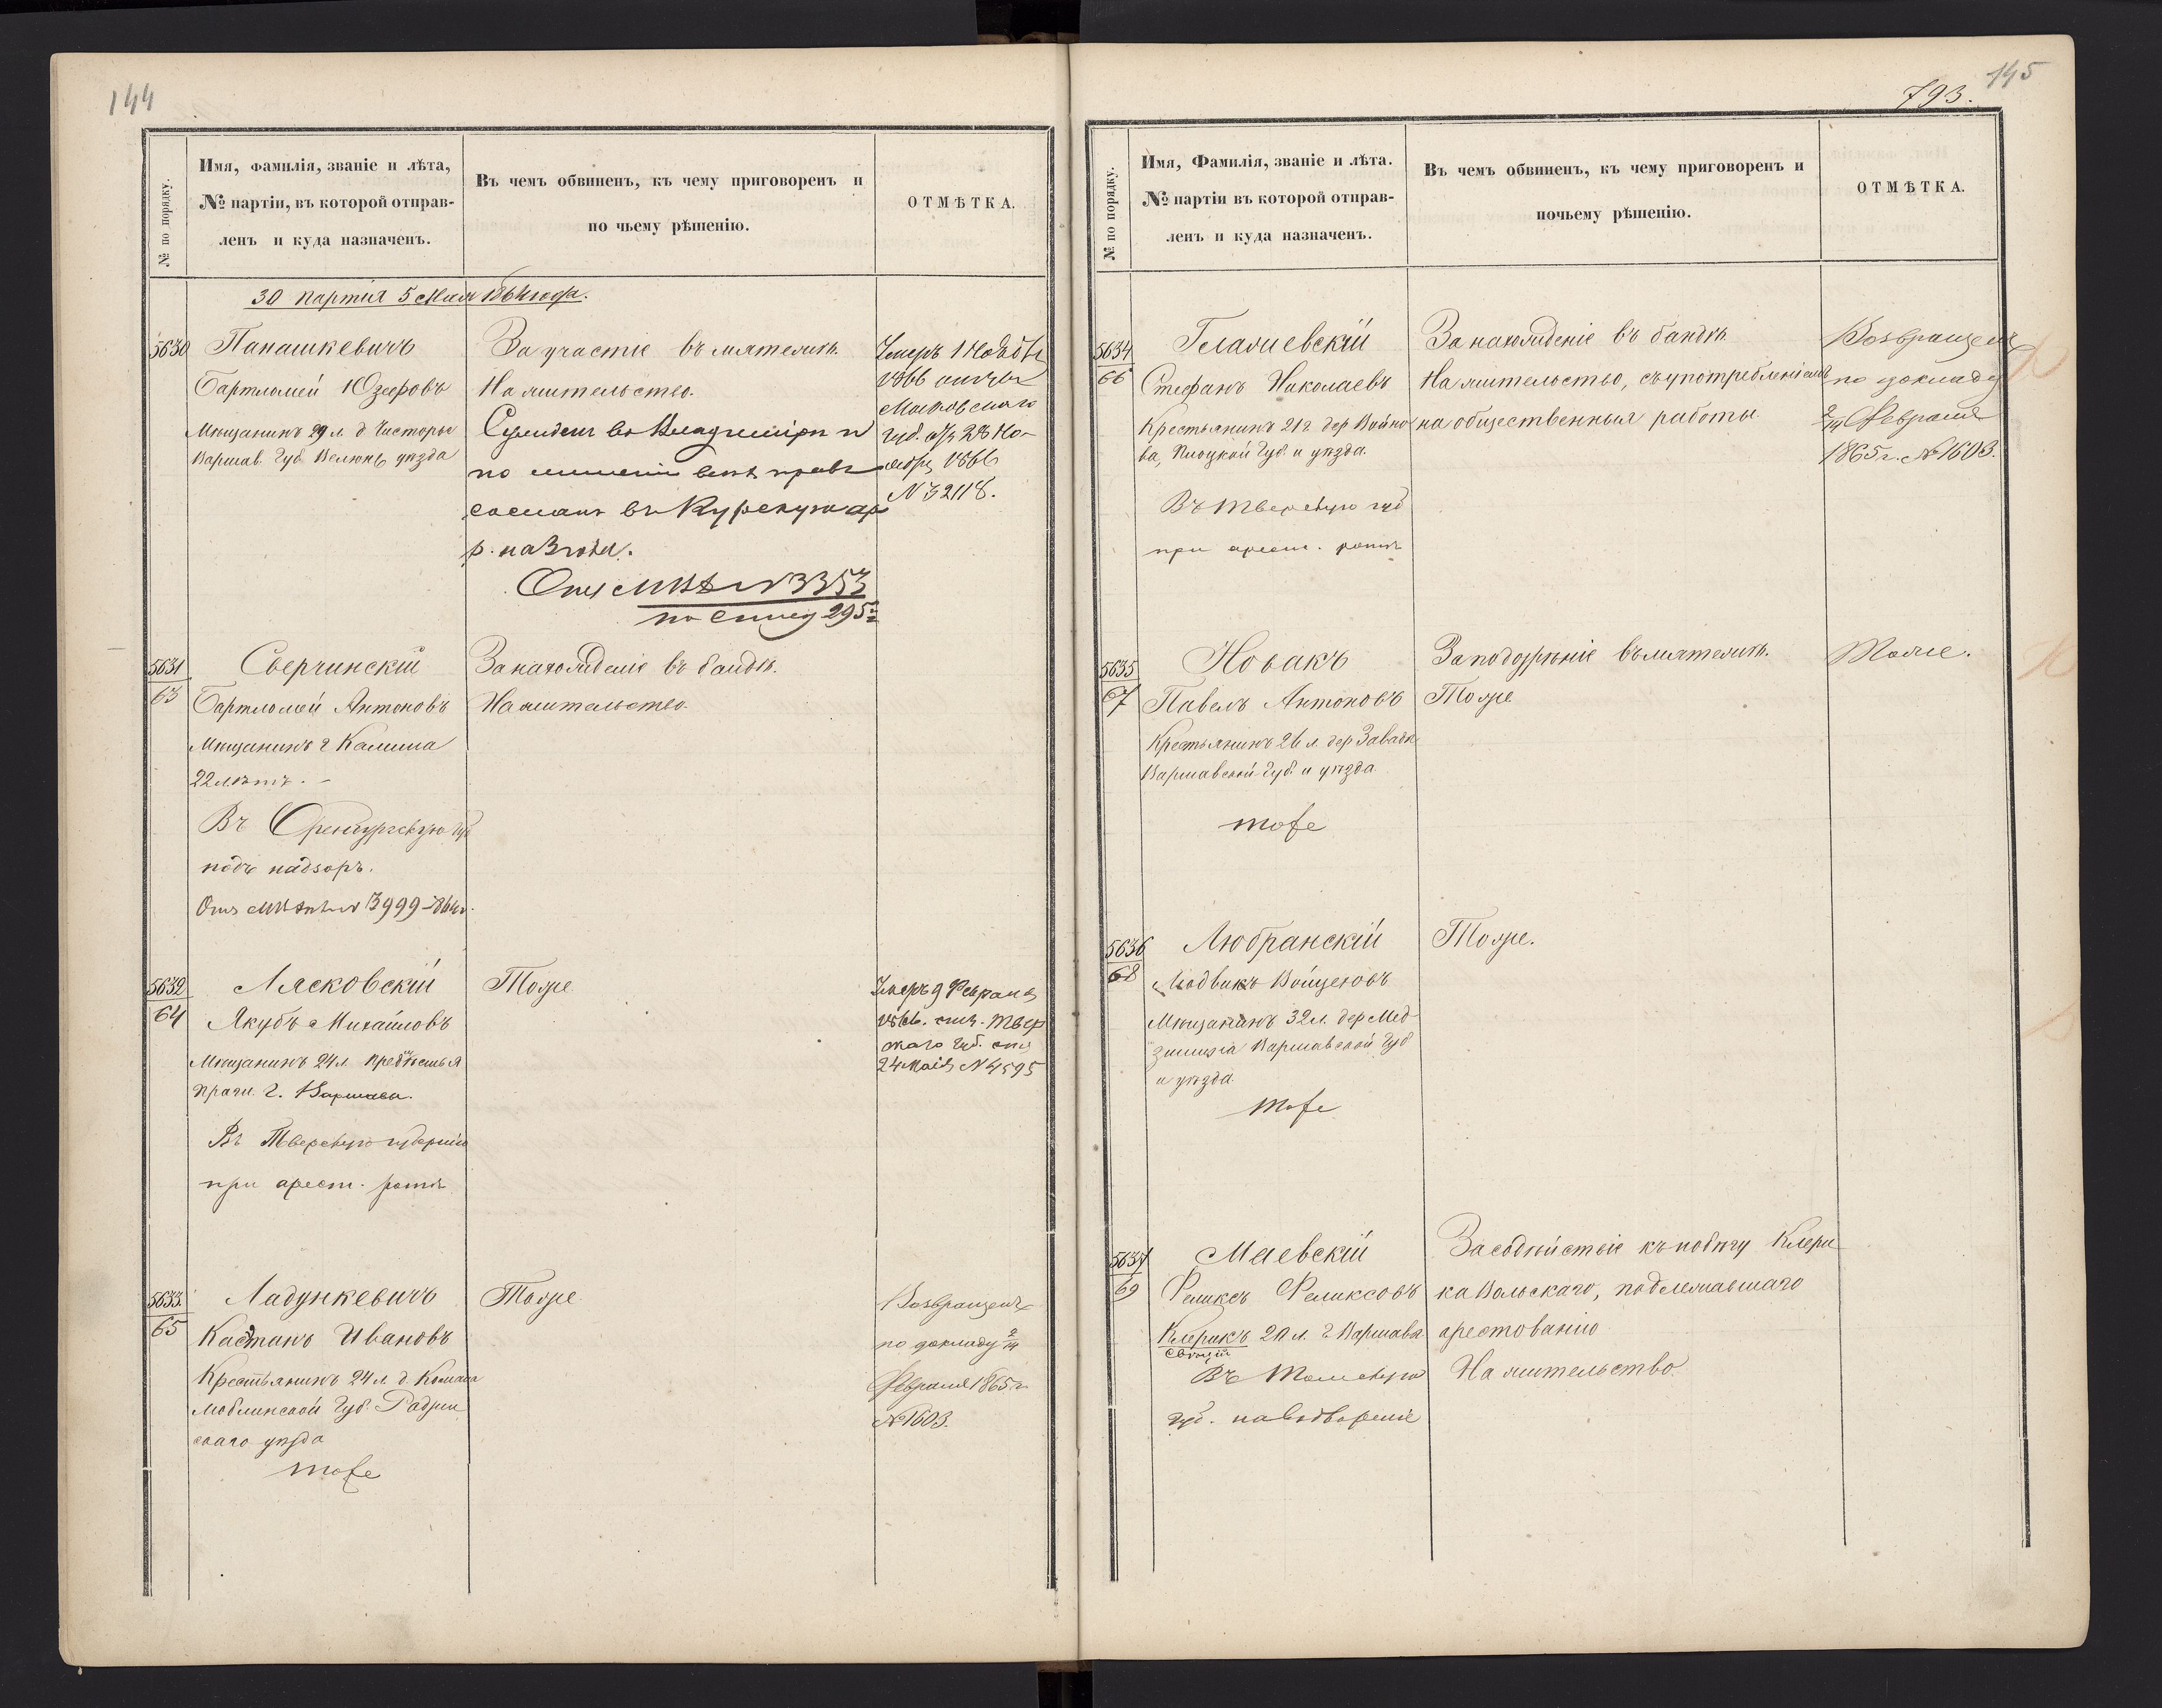 144
№ по порядку.
Имя, фамилія, званіе и лѣта,
№ партіи, въ которой отправ-
ленъ и куда назначенъ.
Въ чемъ обвиненъ, къ чему приговоренъ и
по чьему рѣшенію.
ОТМѢТКА.
30 партія 5 Мая 1864 года.
5630
Панашкевичъ
Бартломей Юзефовъ
Мѣщанинъ 29 л. д.
Варшав. Губ. Велюнь уѣзда
За участіе въ мятежѣ.
На жительство.
сосланъ въ Курскую ар
р. на 3 года.
№ 3353
295
Умеръ 1 Ноября
1866
Московскаго
Губ. 28 Но-
ября 1866
№ 32118.
5631
63
Сверчинскій
Бартломей Антоновъ
Мѣщанинъ г. Калиша
22 лѣтъ. -
Въ Оренбургскую Губ
подъ надзоръ.
3999-864 г.
За нахожденіе въ бандѣ.
На жительство.
5632
64
Лясковскій
Якубъ Михайловъ
Мѣщанинъ 24 л. предмѣстья
Праги г. Варшавы.
Въ Тверскую губернію
при арест. ротѣ
Тоже
Умеръ 9 Февраля
1866. Твер
скаго Губ. отъ
24 Маія № 4595
5633.
65
Ладункевичъ
Каэтанъ Ивановъ
Крестьянинъ 24 л. д.
Люблинской Губ. Радзин
скаго уѣзда
тоже
Тоже
Возвращенъ
по докладу 2/14
Февраля 1865 г.
№ 1603.
145
793.
№ по порядку.
Имя, Фамилія, званіе и лѣта.
№ партіи въ которой отправ-
ленъ и куда назначенъ.
Въ чемъ обвиненъ, къ чему приговоренъ и
почьему рѣшенію.
ОТМѢТКА.
5634
66
Стефанъ Николаевъ
Крестьянинъ 21 г. дер Войно
ва, Плоцкой Губ. и уѣзда.
Въ Тверскую губ
при арест. ротѣ
За нахожденіе въ бандѣ.
На жительство, съ употребленіемъ
на общественныя работы
Возвращенъ
по докладу
2/14 Февраля
1865 г. № 1603.
5635
67
Новакъ
Павелъ Антоновъ
Крестьянинъ 26 л. дер Завады
Варшавской Губ. и уѣзда
тоже
За подозрѣніе въ мятежѣ.
Тоже
Тоже.
5636
68
Любранскій
Людвикъ Войцеховъ
Мѣщанинъ 32 л. дер Мед
Варшавской Губ
и уѣзда.
тоже
Тоже.
5637
69
Маевскій
Феликсъ Феликсовъ
Клерикъ 20 л. г. Варшава
Въ Томскую
губ. на водвореніе
За содѣйствіе къ побѣгу Клери
ка Вольскаго, подлежавшаго
арестованію
На жительство.